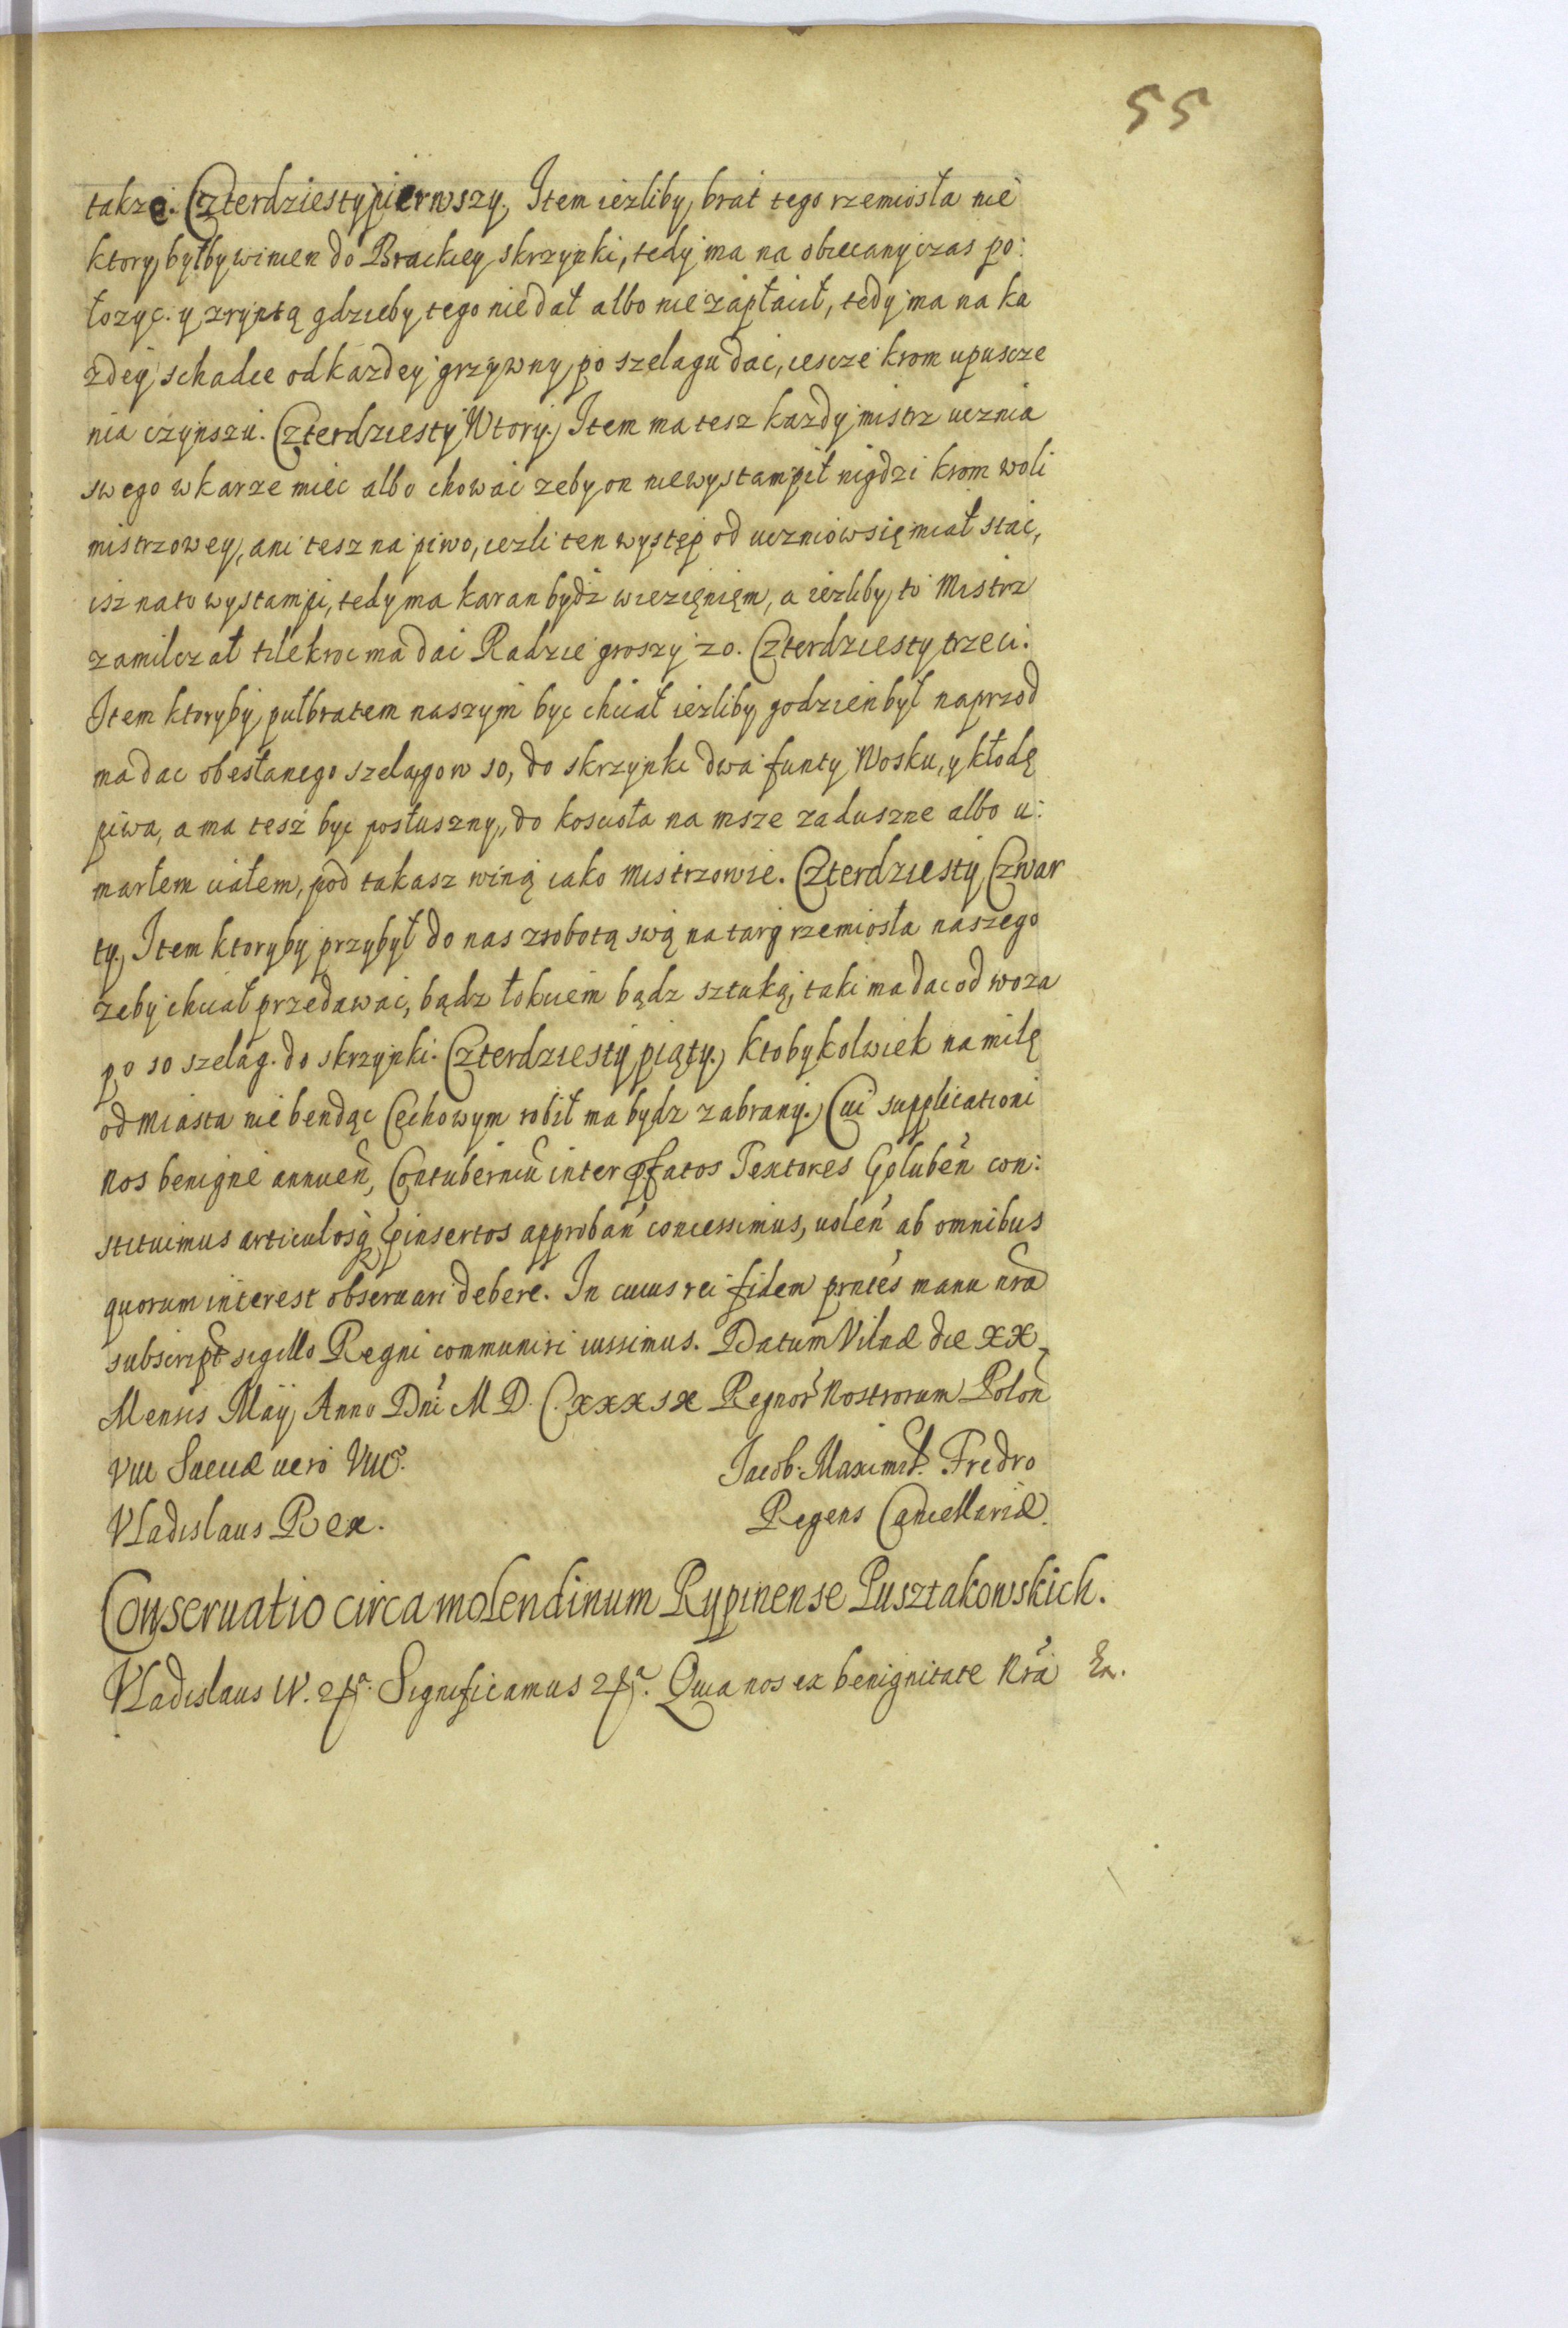 55
takze. Czterdziesty pierwszy. Item iezliby brat tego rzemiosła nie
ktory byłby winien do Brackiey skrzynki, tedy ma na obiecany czas po:
łozyc. y zryptą gdzieby tego nie dał albo nie zapłacił, tedy ma na ka
zdey schadce od kazdey grzywny po szelagu dac, iescze krom upuscze
nia czynszu. Czterdziesty Wtory. Item ma tesz kazdy mistrz ucznia
swego w karze miec albo chowac zeby on niewystampił nigdzi krom woli
mistrzowey, ani tesz na piwo, iezli ten występ od uczniow się miał stac,
isz nato wystampi, tedy ma karan bydz wiezięnięm, a iezliby to Mistrz
zamilczał tilekroc ma dac Radzie groszy 20. Czterdziesty trzeci.
Item ktoryby pułbratem naszym byc chciał iezliby godzien był naprzod
ma dac obesłanego szelągow 10, do skrzynki dwa funty Wosku, y kłodę
piwa, a ma tesz byc posłuszny, do koscioła na msze zaduszne albo u:
marłem ciałem, pod takasz winą iako Mistrzowie. Czterdziesty Czwar
ty. Item ktoryby przybył do nas zrobotą swą na targ rzemiosła naszego
zeby chciał przedawac, bądz łokciem bądz sztuką, taki ma dac od woza
po 10 szelag. do skrzynki. Czterdziesty piąty. Ktobykolwiek na milę
od Miasta nie bendąc Cechowym robił ma bydz zabrany. Cui supplicationi
Nos benigne annuen, Contuberniu inter pfatos Textores Goluben con:
stituimus articulosq pinsertos approban concessimus, uolen ab omnibus
quorum interest obseruari debere. In cuius rei fidem prntes manu nra
subscript sigillo Regni communiri iussimus. Datum Vilnæ die XX
Mensis Maÿ Anno Dni M D. C. XXXIX Regnor Nostrorum Polon
VII Sueciæ uero VIII.
Jacob. Maximil. Fredro
Vladislaus Rex.
Regens Cancellariæ.
Conseruatio circa molendinum Rypinense Pusztakowskich.
Vladislaus IV. Significamus Quia nos ex benignitate Nra